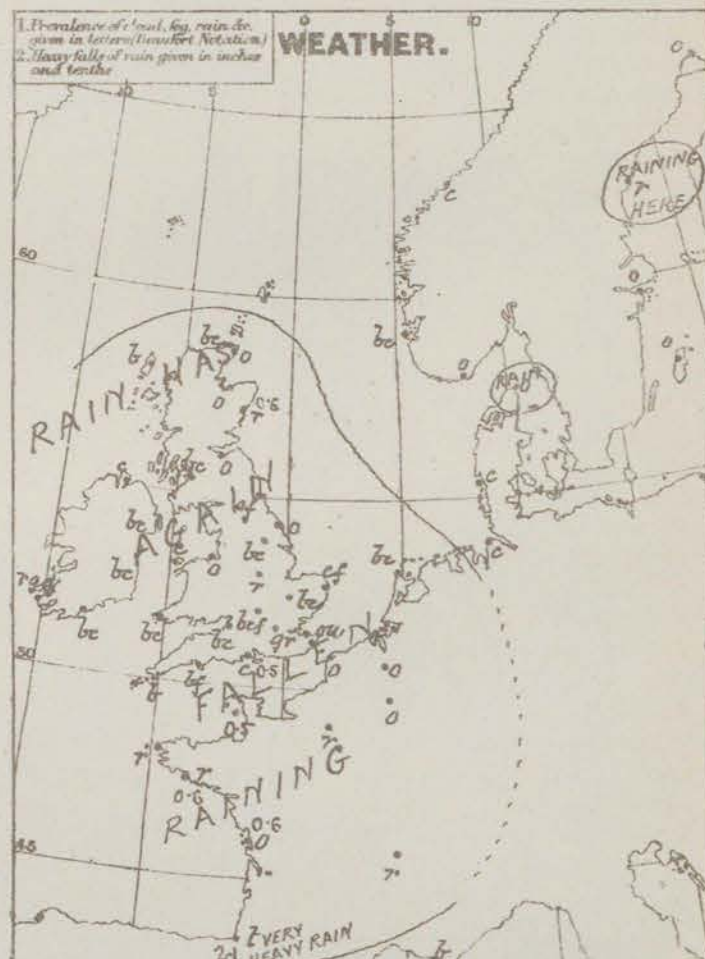 1. Prevalence of cloud, fog, rain &c.
given in letters (Beaufort Notation)
2. Heavy falls of rain given in inches
and tenths
WEATHER.
10
5
0
5
10
60
50
45
RAINING
r
HERE
RAIN
RAIN HAS
AGAIN
FALLEN
RAINING
VERY
HEAVY RAIN
0
c
0
0
bc
0
bc
0
b
0
0.6
r
c
bc
0
0
c
bc
bc
0
r
bc
bc
bc
bcf
bc
c
gr
0
0.5
0
0
0.5
r
r
r
0.6
0.6
0
r
b